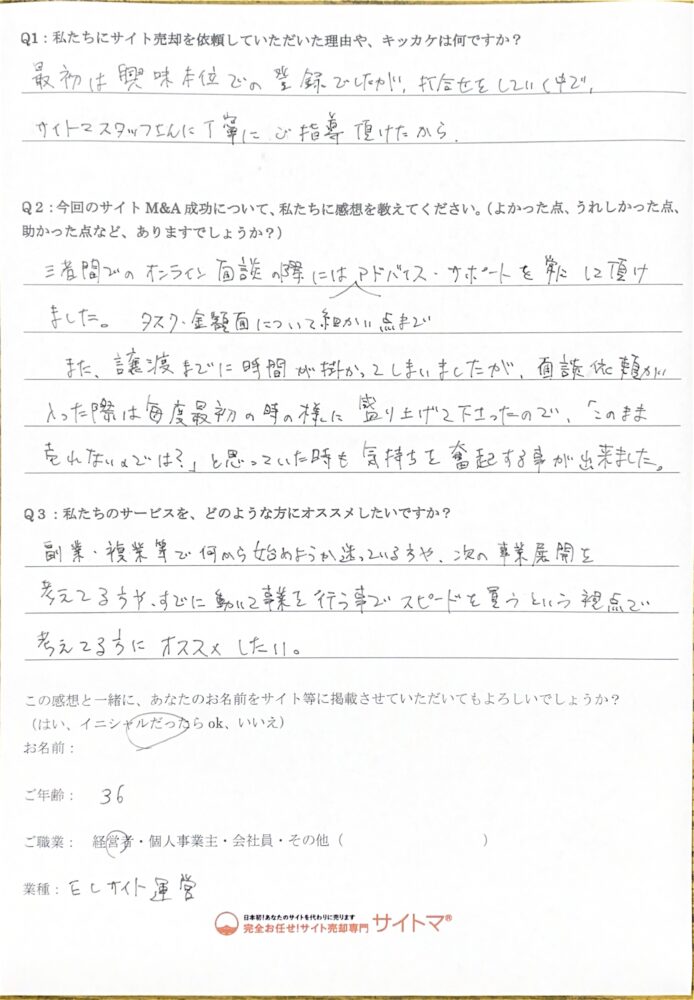 Q1：私たちにサイト売却を依頼していただいた理由や、キッカケは何ですか？
最初は興味本位での登録でしたが、打合せをしていく中で、
サイトマスタッフさんに丁寧にご指導頂けたから.
Q２：今回のサイト M&A 成功について、私たちに感想を教えてください。（よかった点、うれしかった点、
助かった点など、ありますでしょうか？）
三者間でのオンライン面談の際にはアドバイス・サポートを常にして頂け
ました。 タスク・金額面について細かい点まで
また、譲渡までに時間が掛かってしまいましたが、面談依頼が
入った際は毎度最初の時の様に盛り上げて下さったので、「このまま
売れないのでは？」と思っていた時も気持ちを奮起する事が出来ました。
Q３：私たちのサービスを、どのような方にオススメしたいですか？
副業・複業等で何から始めようか迷っている方や、次の事業展開を
考えてる方や、すでに動いて事業を行う事でスピードを買うという視点で
考えてる方にオススメしたい。
この感想と一緒に、あなたのお名前をサイト等に掲載させていただいてもよろしいでしょうか？
（はい、イニシャルだったら ok、いいえ）
お名前：
ご年齢： 36
ご職業： 経営者・個人事業主・会社員・その他（ ）
業種：ECサイト運営
日本初!あなたのサイトを代わりに売ります
完全お任せ!サイト売却専門 サイトマ®